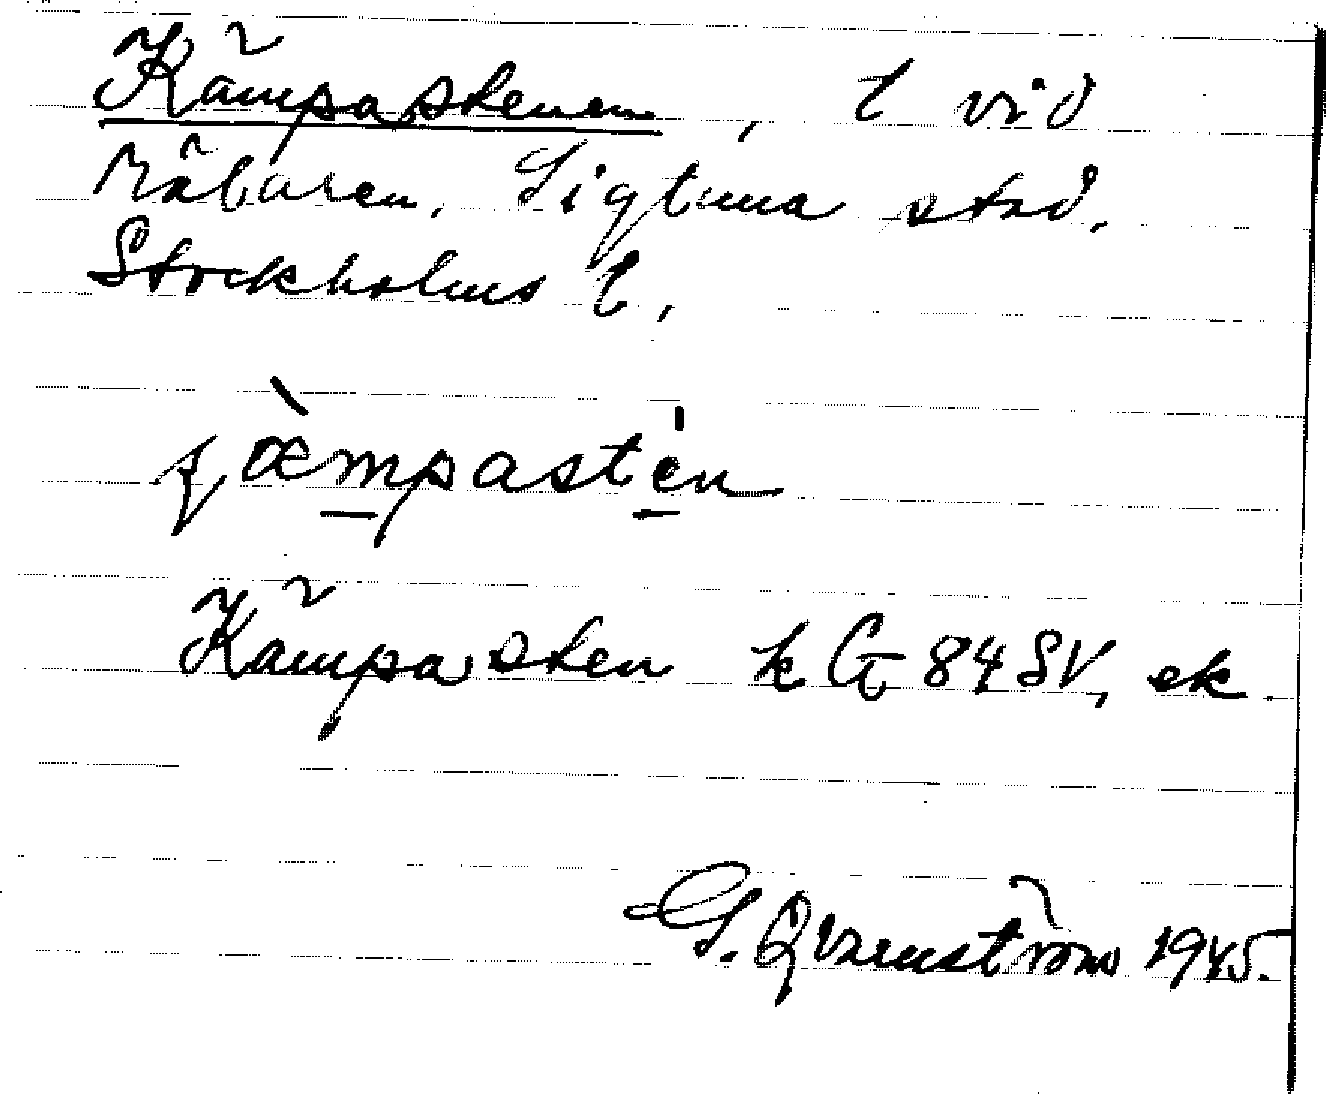 Kämpastenen, l vid
Mälaren. Sigtuna stad.
Stockholms l.
çæ̀mpastén
Kämpasten k G 84 SV, ek
G. Qvarnström 1945.